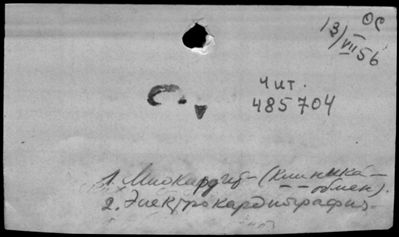 ОС
13/VII 56
Чит.
485704
1. Миокардит - (клиника -
- - обмен).
2. Электрокардиография -